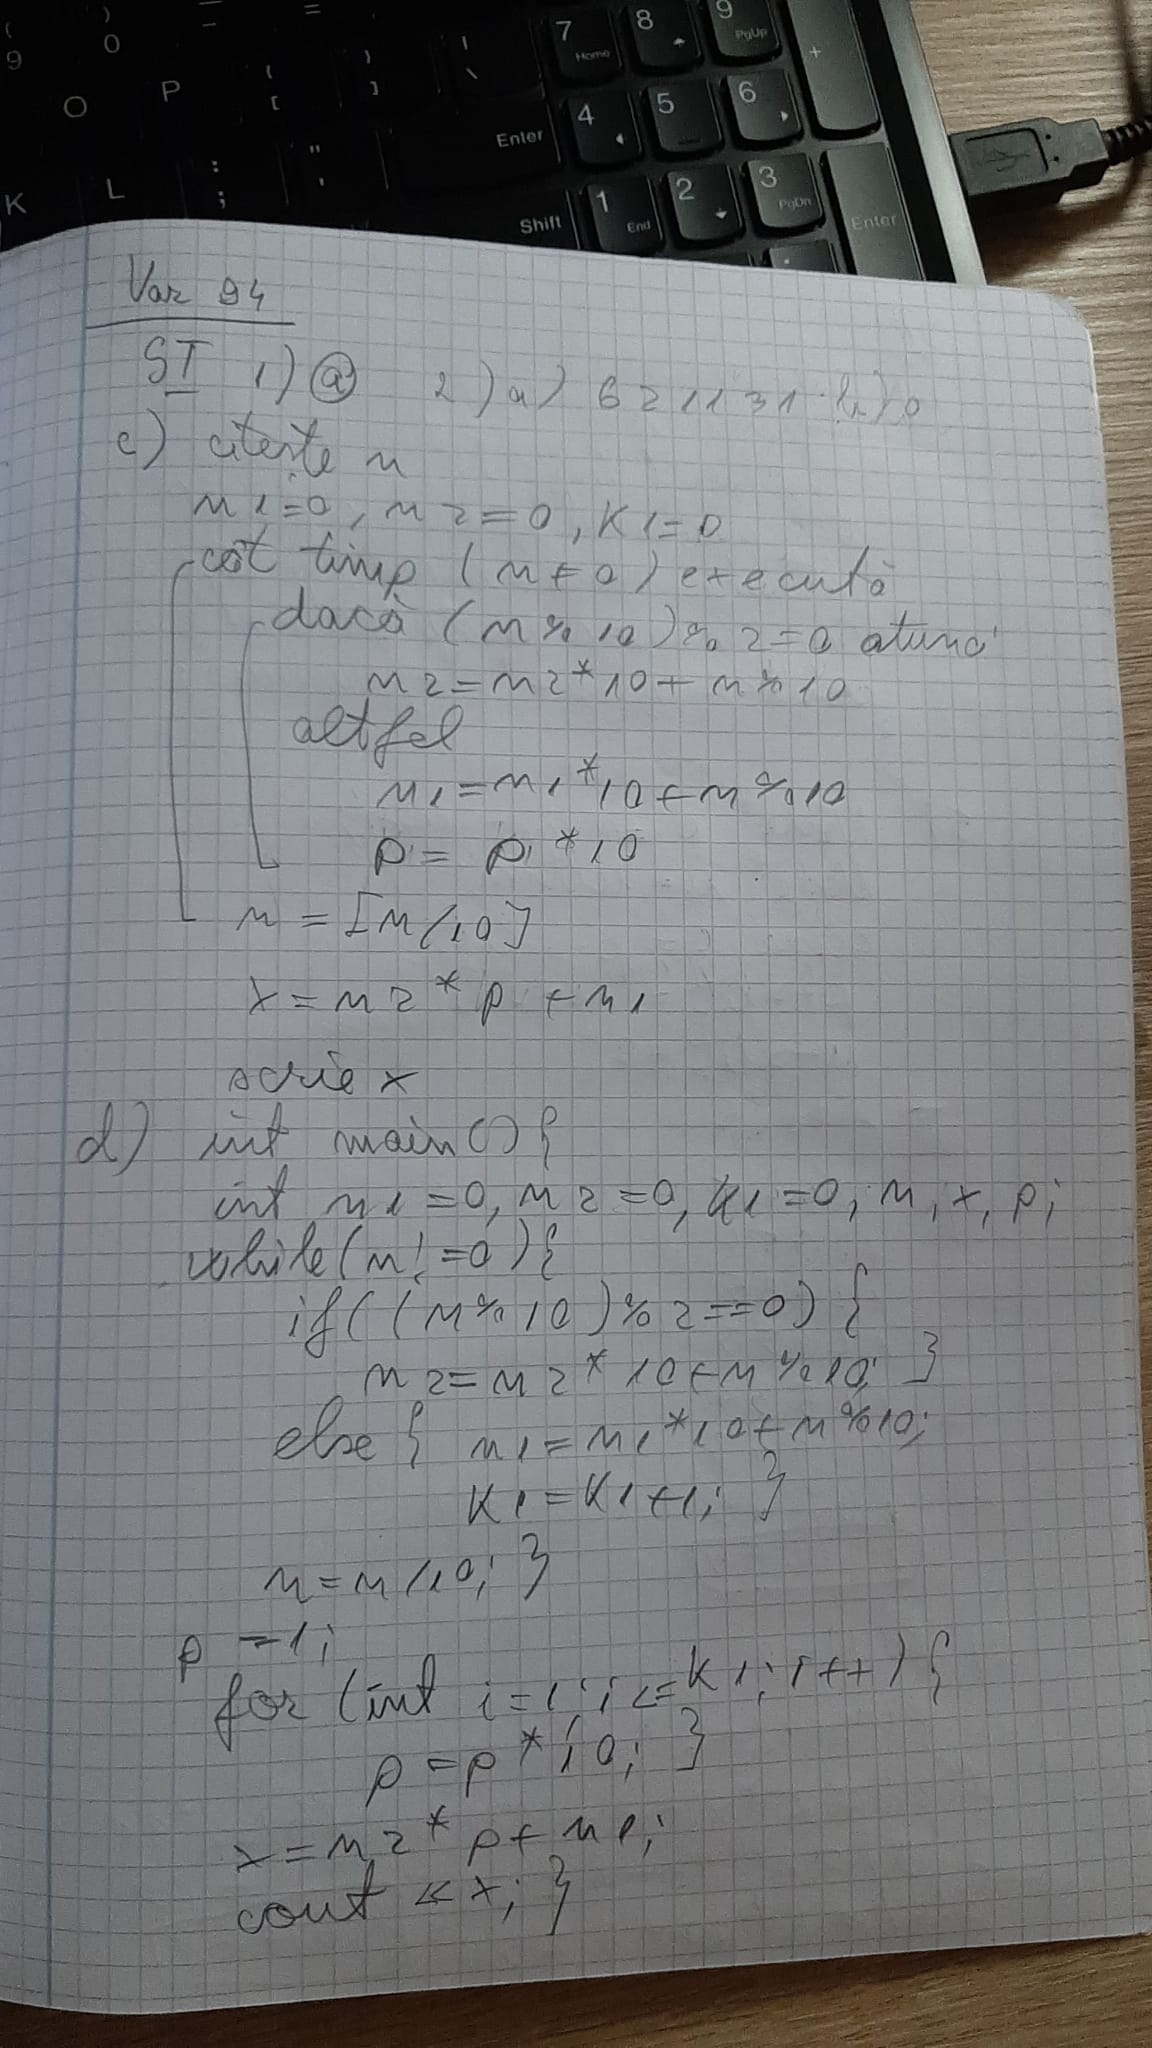 ( ) _ =
9 0 –
O P { } |
[ ] \
7 8 9 +
Home PgUp
Enter 4 5 6
K L : "
; '
Shift 1 2 3 Enter
End PgDn
.
Var 94
SI 1) a 2) a) 621131 b) 0
c) citește n
n1=0, n2=0, K1=0
cât timp (n≠0) execută
dacă (n%10)%2=0 atunci
n2=n2*10+n%10
altfel
n1=n1*10+n%10
p=p*10
n=[n/10]
x=n2*p+n1
scrie x
d) int main(){
int n1=0, n2=0, k1=0, n, x, p;
while(n!=0){
if((n%10)%2==0){
n2=n2*10+n%10; }
else{ n1=n1*10+n%10;
K1=K1+1; }
n=n/10; }
p=1;
for(int i=1;i<=K1;i++){
p=p*10; }
x=n2*p+n1;
cout<<x; }